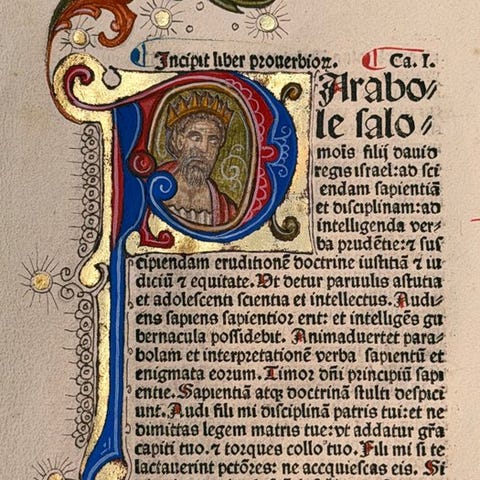 Incipit liber prouerbioꝝ. Ca. I.
Parabo⸗
le salo⸗
mōis filij dauid
regis israel: ad sci
endam sapientiā
et disciplinam: ad
intelligenda ver⸗
ba prudētie: ⁊ sus
cipiendam eruditionē doctrine iustitiā ⁊ iu
diciū ⁊ equitate. Ut detur paruulis astutia
et adolescenti scientia et intellectus. Audi⸗
ens sapiens sapientior erit: et intelligēs gu
bernacula possidebit. Animaduertet para⸗
bolam et interpretationē verba sapientū et
enigmata eorum. Timor dñi principiū sapi
entie. Sapientiā atqꝫ doctrinā stulti despici
unt. Audi fili mi disciplinā patris tui: et ne
dimittas legem matris tue: vt addatur gr̄a
capiti tuo. ⁊ torques collo tuo. Fili mi si te
lactauerint pctōres: ne accquiescas eis. Si